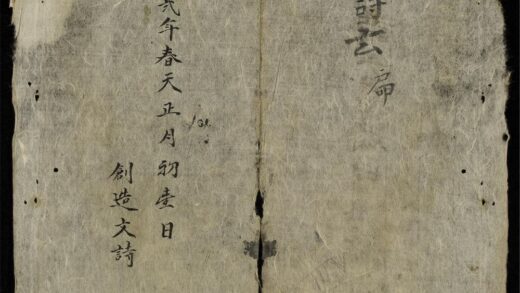 詩
扁
年春天正月初壹日
創造文詩